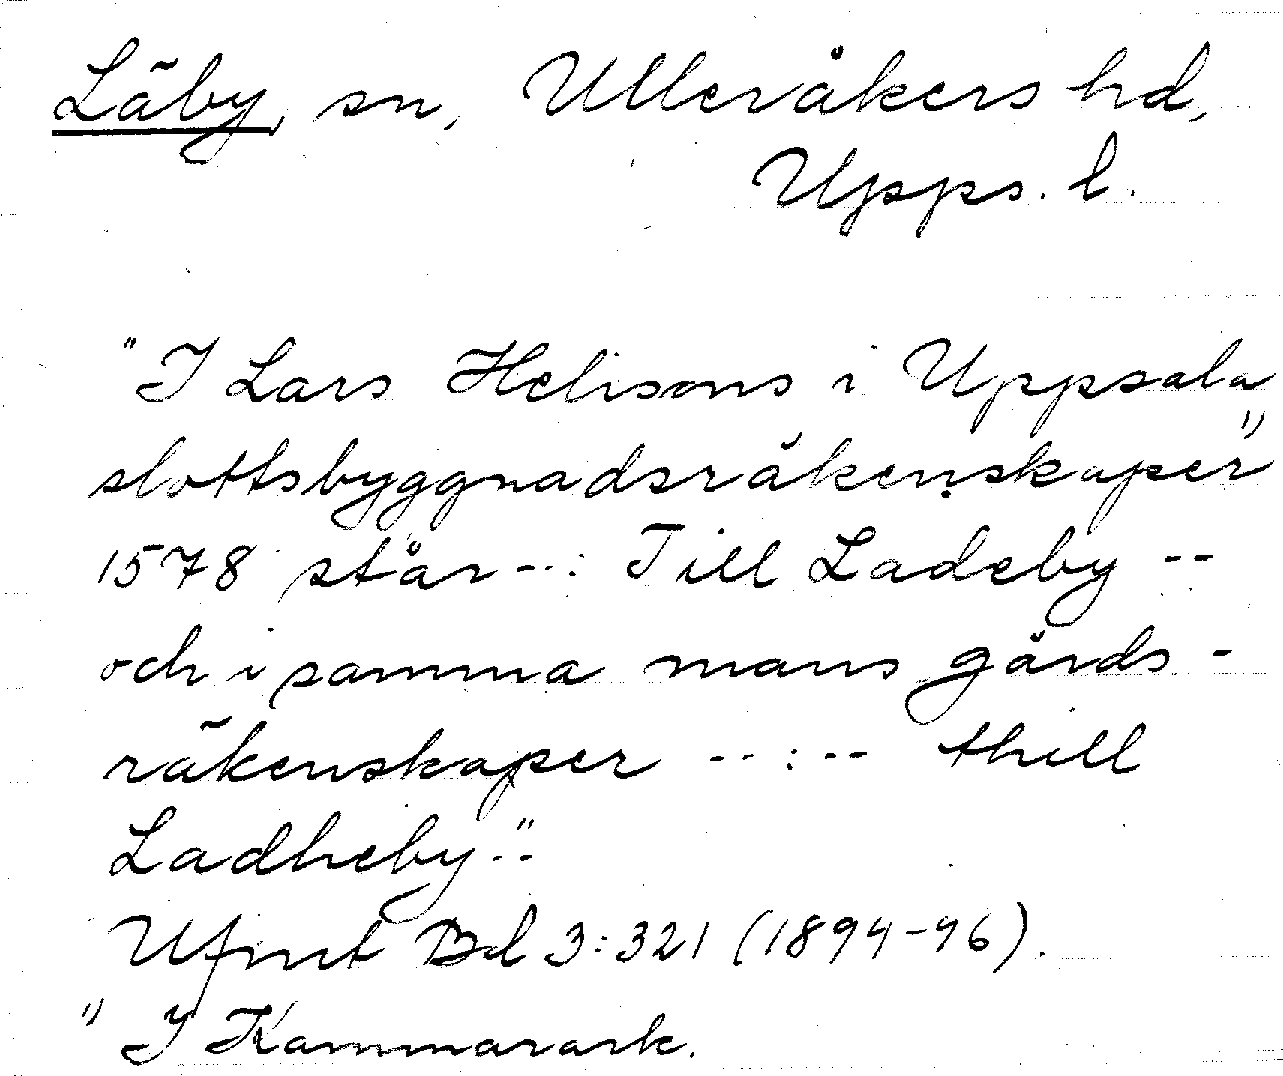 Läby, sn, Ulleråkers hd,
Upps. l.
"I Lars Helisons i Uppsala
slottsbyggnadsräkenskaper 1)
1578 står --: Till Ladeby --
och i samma mans gårds-
räkenskaper --:-- thill
Ladheby--"
Ufmt Bd 3:321 (1894-96).
1) I Kammarark.